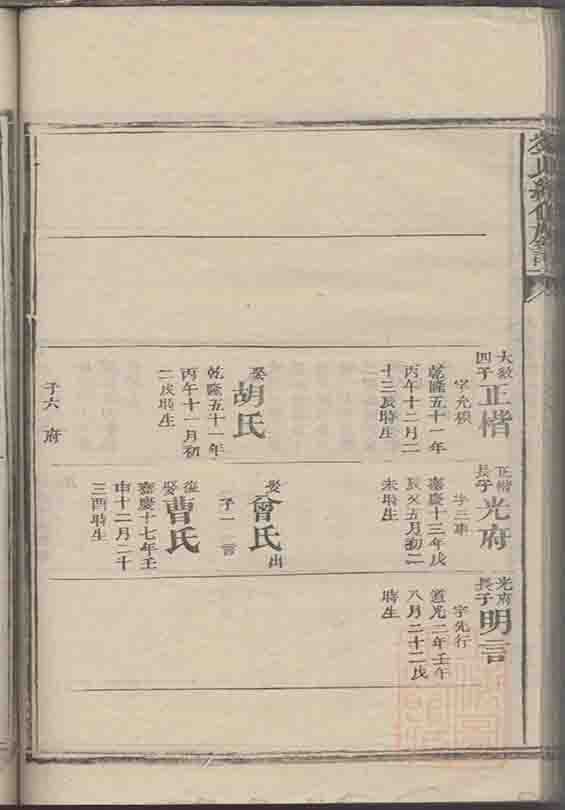 大毅
四子
正楷
字允碩
乾隆五十一年
丙午十二月二
十三辰時生
娶
胡氏
乾隆五十一年
丙午十一月初
二戌時生
子六
府
正楷
長子
光府
嘉慶十三年戊
辰又五月初二
未時生
娶
曾氏
出
子一
言
復
娶
曹氏
嘉慶十七年壬
申十二月二十
三酉時生
光府
長子
明言
字先行
道光二年壬午
八月二十二戌
時生